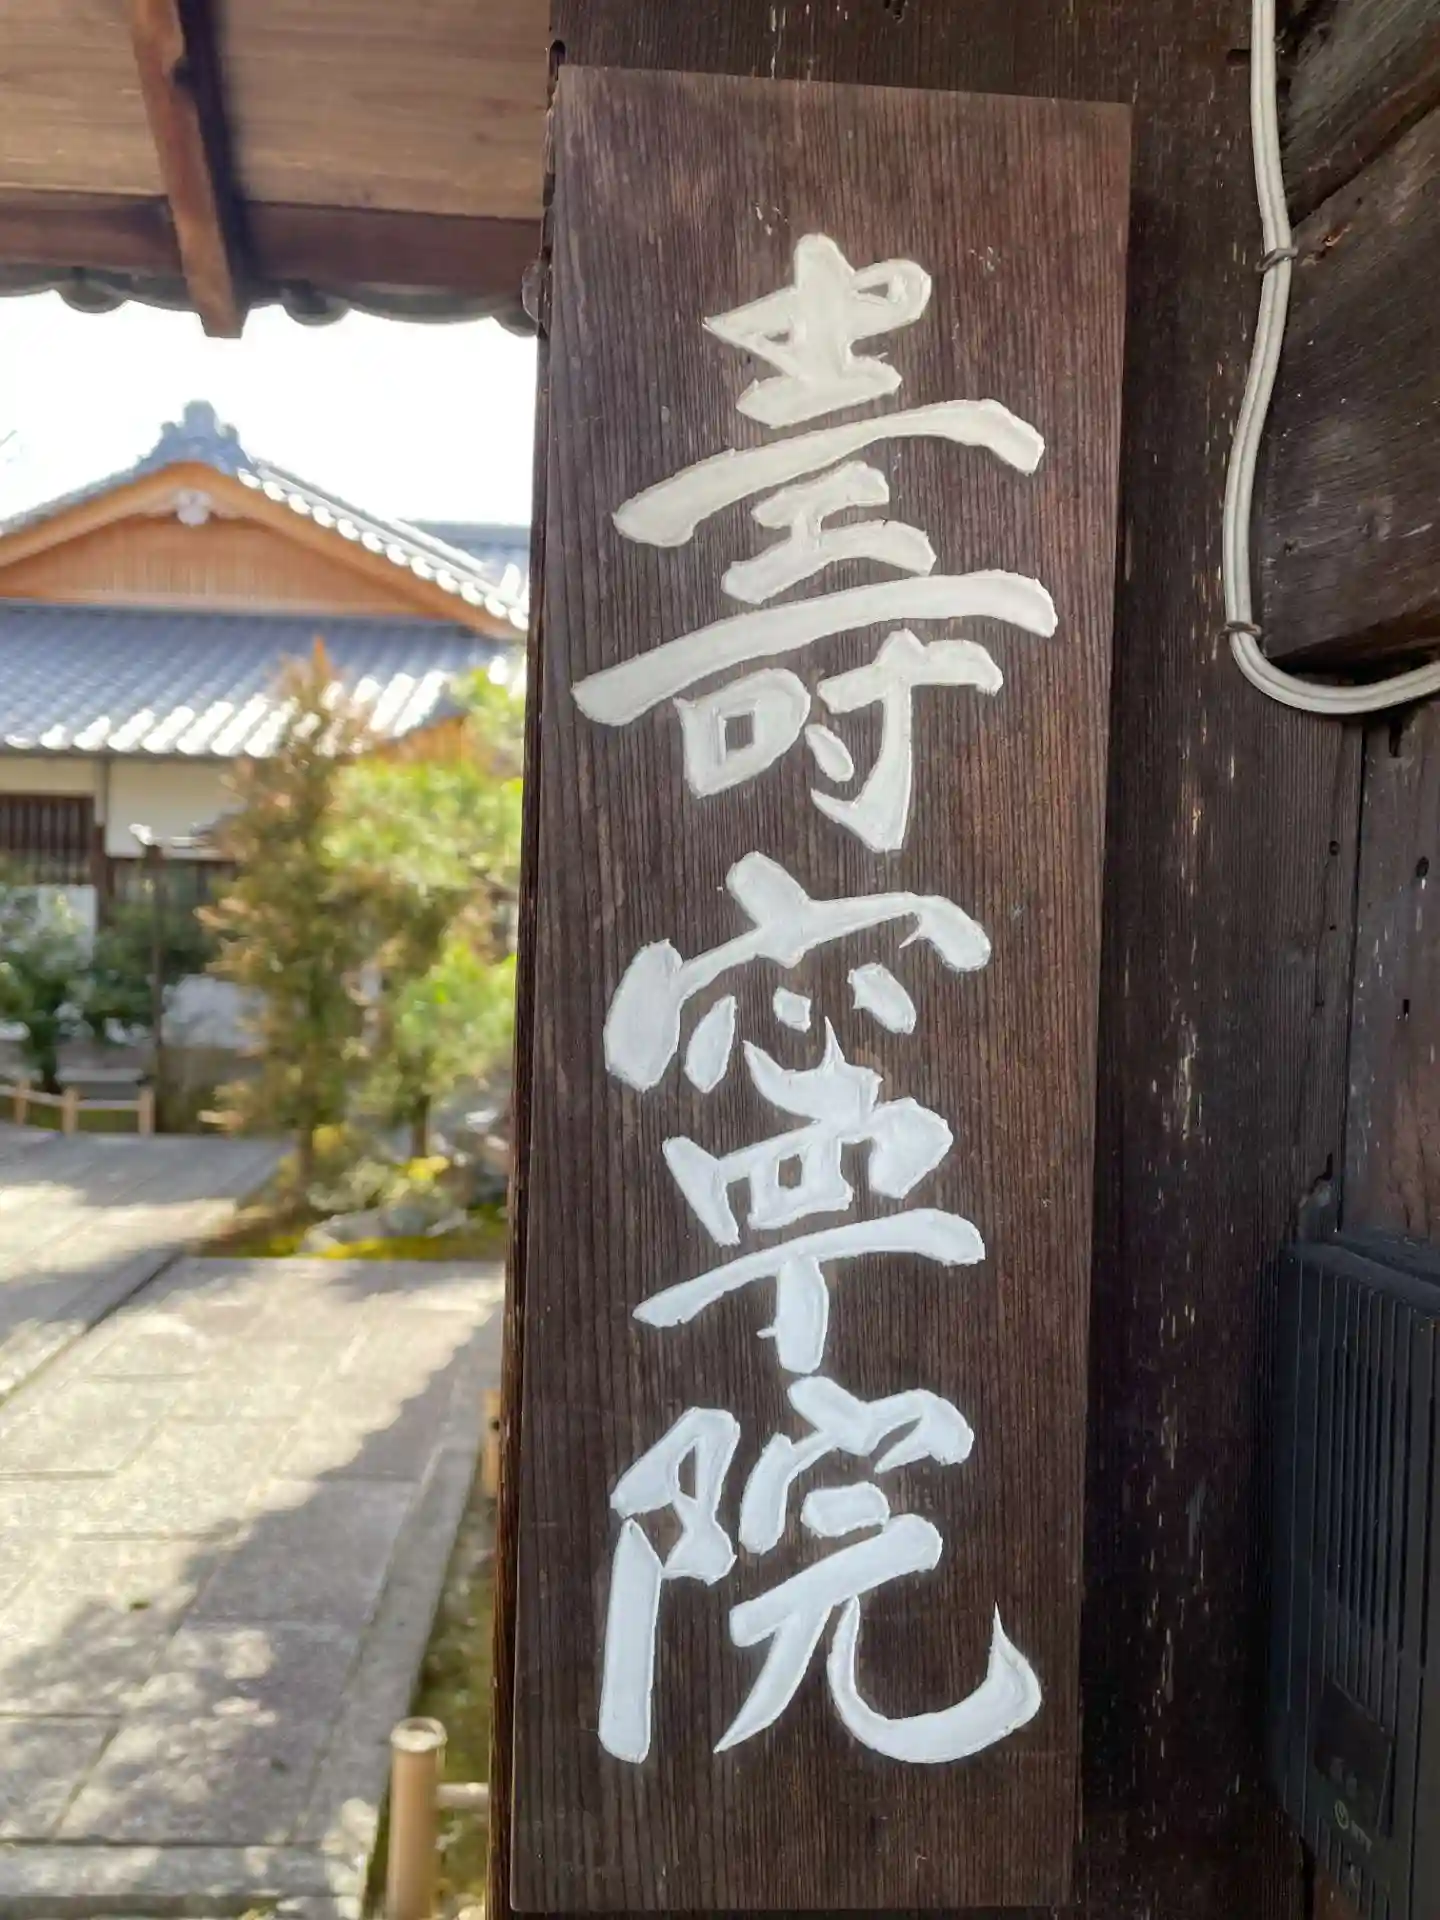 壽寧院